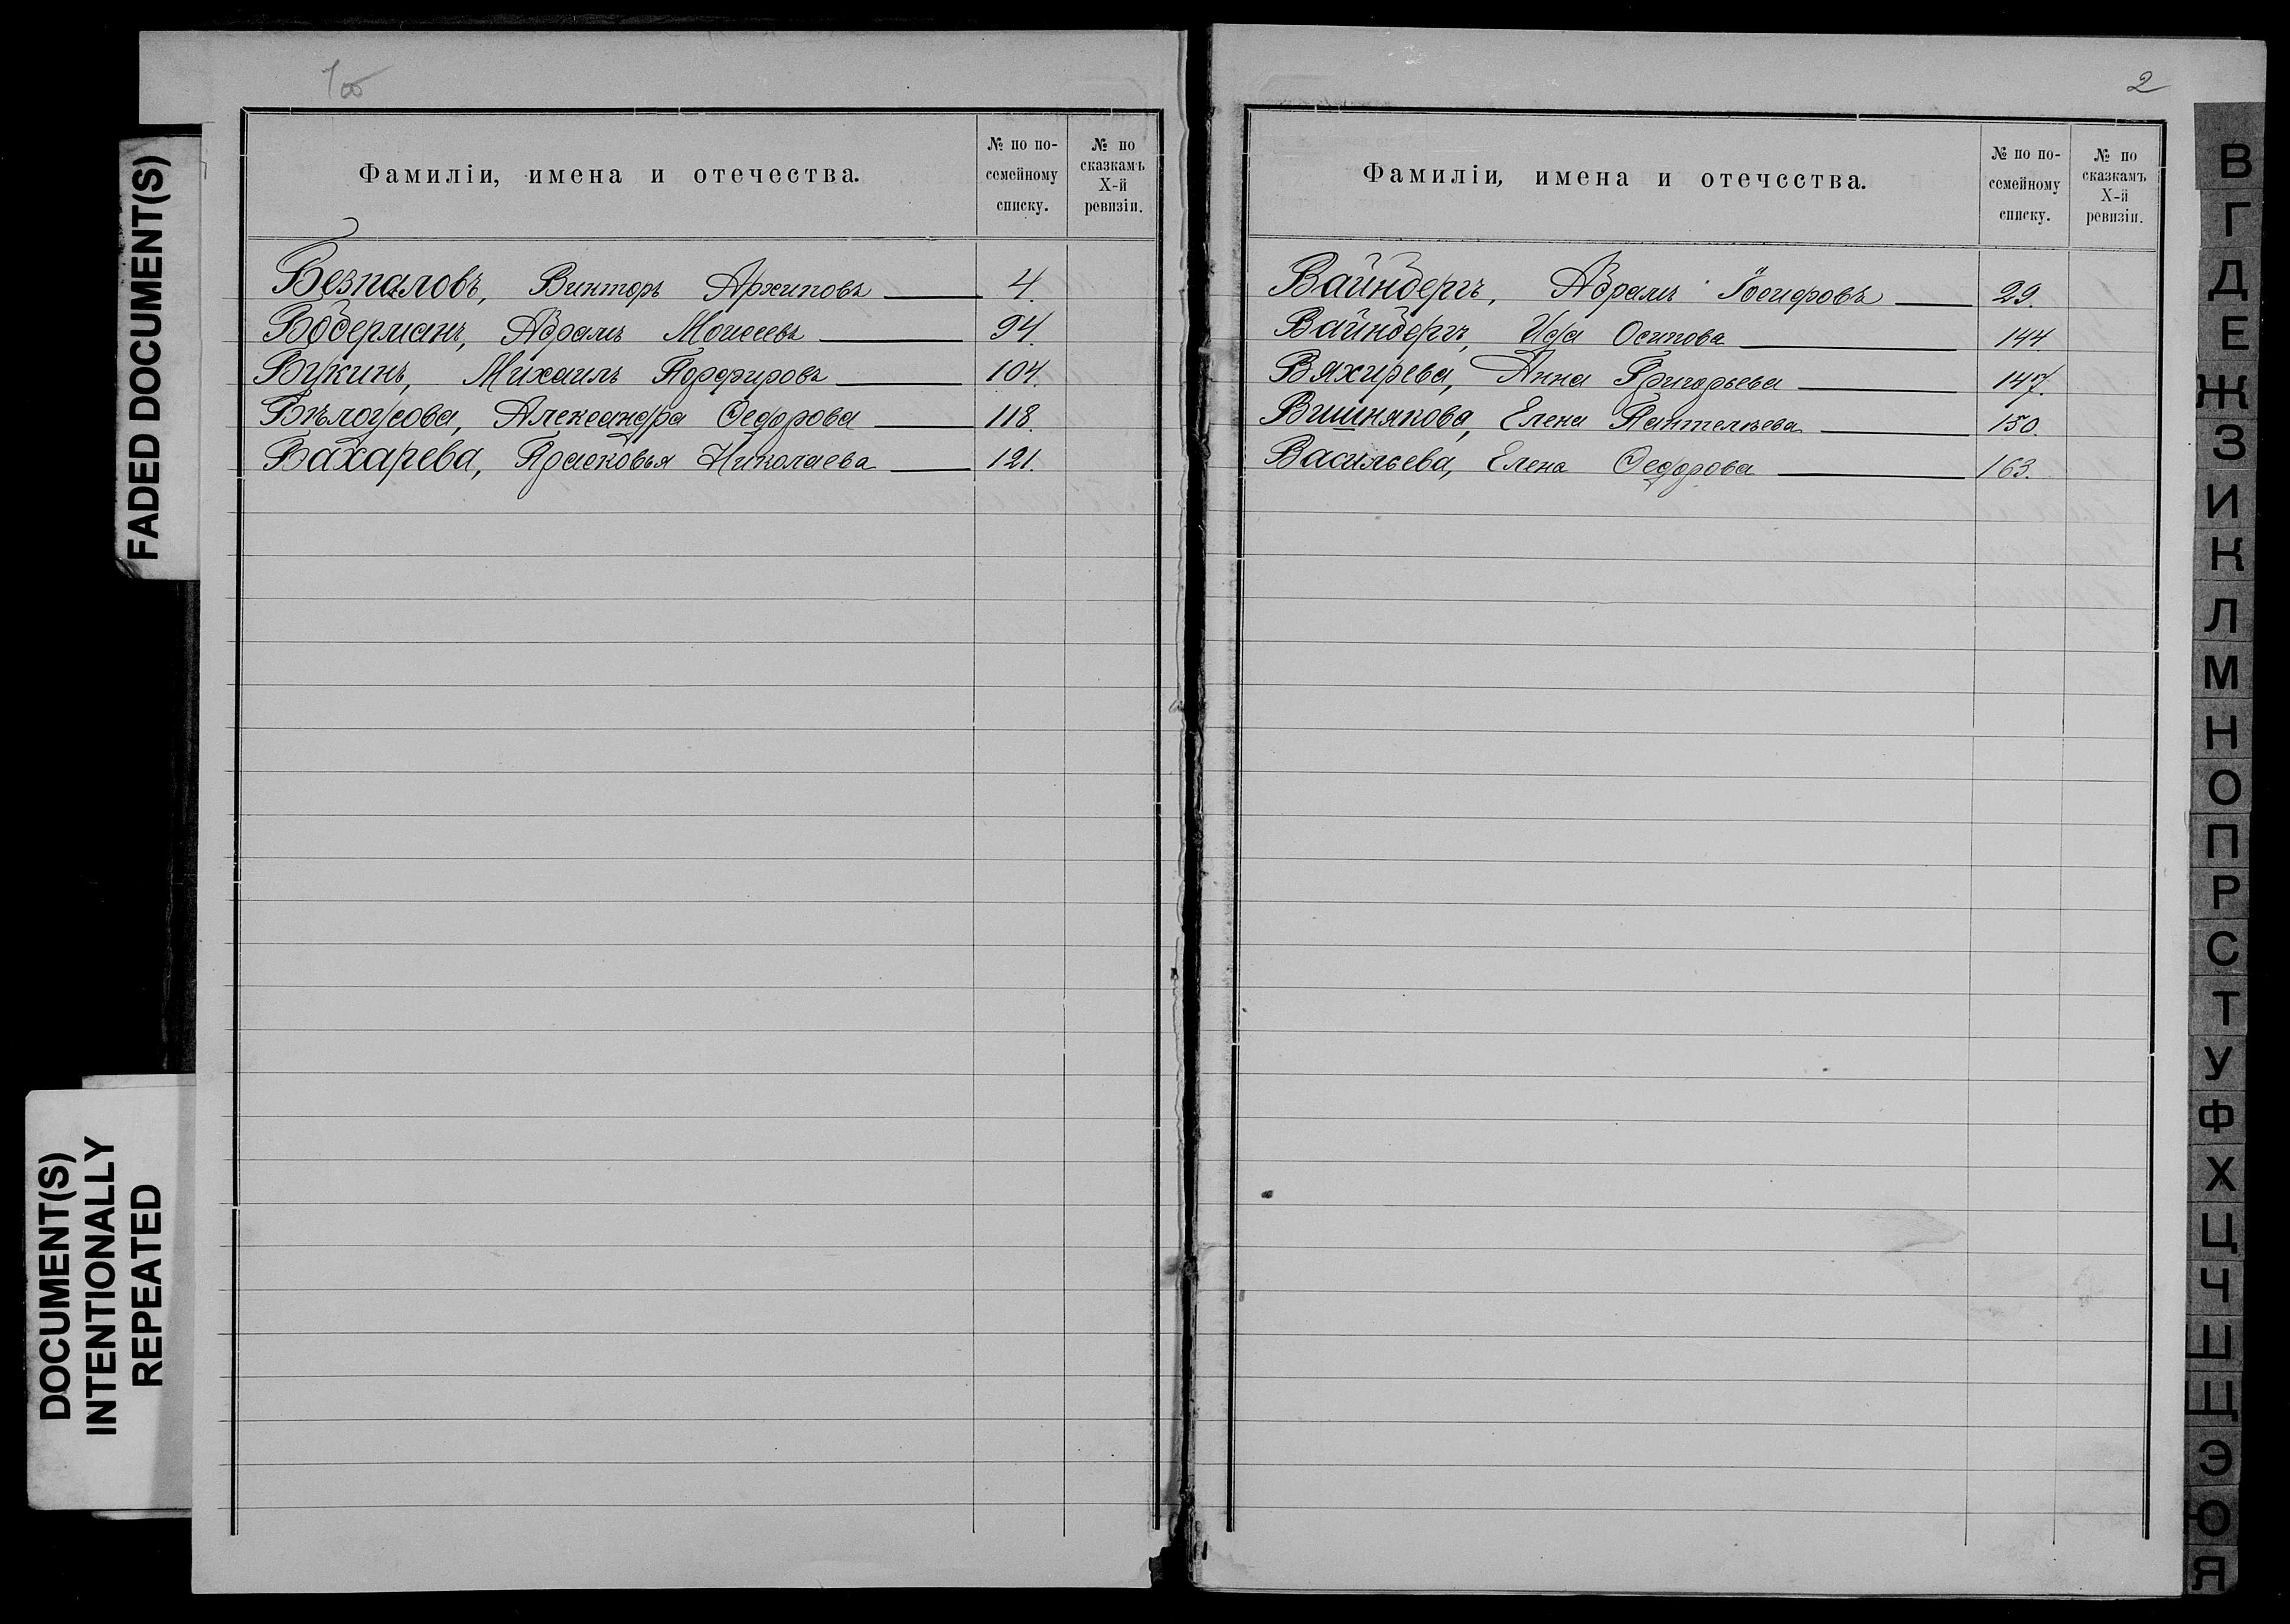 FADED DOCUMENT(S)
DOCUMENT(S)
INTENTIONALLY
REPEATED
Фамиліи, имена и отечества.
№ по по-
семейному
списку.
№ по
сказкамъ
X-й
ревизіи.
Безпаловъ, Викторъ Архиповъ 4.
Бодерманъ, Абрамъ Моисеевъ 94.
Букинъ, Михаилъ Порфировъ 104.
Бѣлоусова, Александра Федорова 118.
Бахарева, Прасковья Николаева 121.
2
Фамиліи, имена и отечества.
№ по по-
семейному
списку.
№ по
сказкамъ
X-й
ревизіи.
Вайнбергъ, Абрамъ Іосифовъ 29.
Вайнбергъ, Осипова 144.
Вяхирева, Анна Григорьева 147.
Вишнякова, Елена Пантелѣева 150.
Васильева, Елена Федорова 163.
В
Г
Д
Е
Ж
З
И
К
Л
М
Н
О
П
Р
С
Т
У
Ф
Х
Ц
Ч
Ш
Щ
Э
Ю
Я